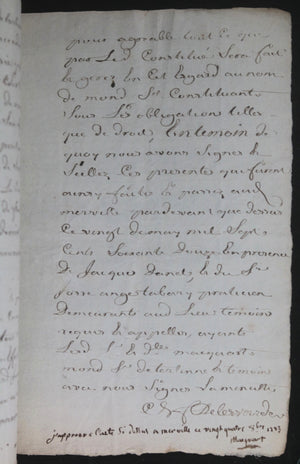 pour agreable tout ce que
par led. Constitué Sera fait
& gerez En Cet Egard au nom
de mond. Sr. Constituant
Sous Les obligation telles
que de droit, En temoin de
quoy nous avons Signés &
Scellez Ces presente qui furent
ainsy faites & passez aud.
merville pardevant que dessus
Ce vingt de may mil Sept
Cent Soixante Douze En presence
De Jacque Danel, & du Sr.
praticien
Demeurants aud. Lieu temoins
requis & appellez, ayants
Led. Sr. &
mond. Sr. & temoin
avec nous Signes La minutte
j'approuve l'acte cy dessus a merville ce vingt quatre 8bre 1783